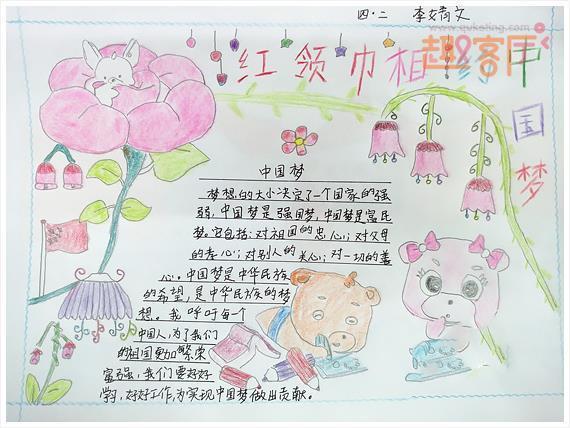 四.二 李婧文
www.qukeling.com
趣客库
红领巾相约中国梦
中国梦
梦想的大小决定了一个国家的强
弱,中国梦是强国梦,中国梦是富民
梦。它包括:对祖国的忠心;对父母
的孝心;对别人的关心;对一切的善
心。中国梦是中华民族
的希望,是中华民族的梦
想。我呼吁每一个
中国人,为了我们
的祖国更加繁荣
富强,我们要好好
学习,好好工作,为实现中国梦做出贡献。